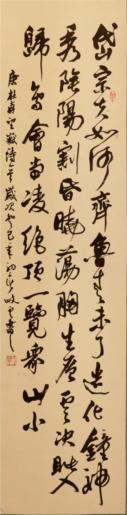 岱宗夫如何齊魯青未了造化鍾神
秀陰陽割昏曉蕩胸生層雲決眥入
歸鳥會當凌絕頂一覽眾山小
杜甫望嶽詩一首歲次